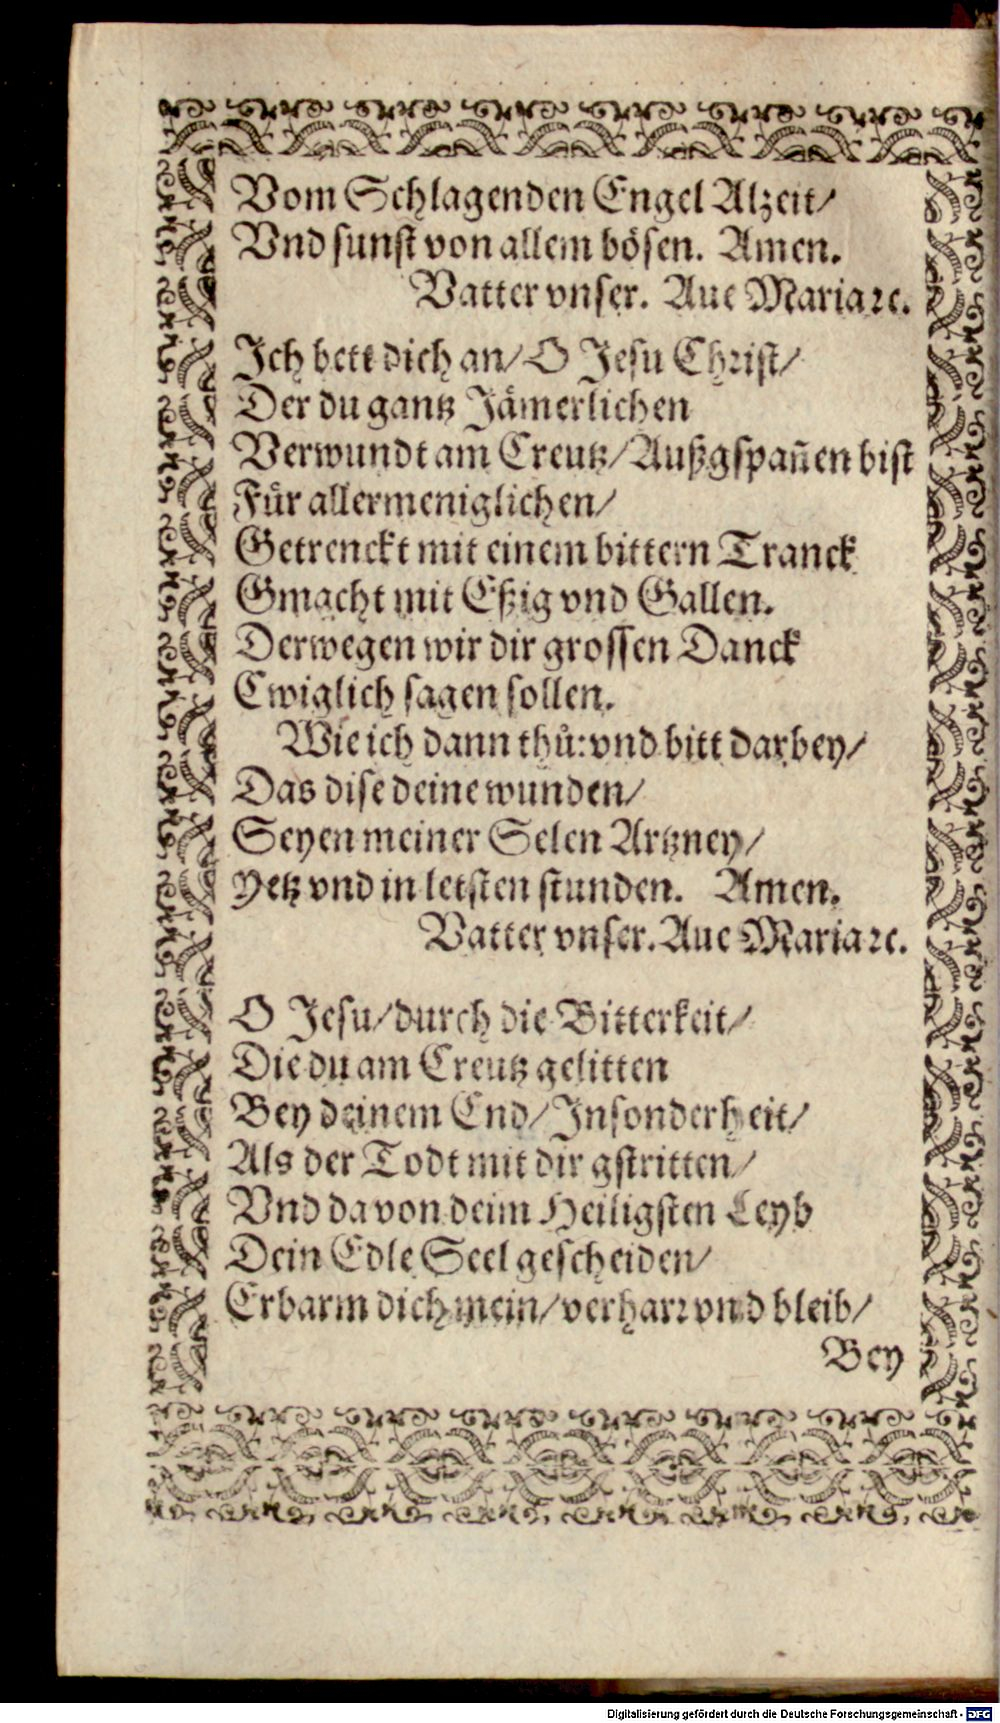 Vom Schlagenden Engel Alzeit/
Vnd sunst von allem bösen. Amen.
Vatter vnser. Aue Maria ꝛc.
Ich bett dich an/ O Jesu Christ/
Der du gantz Jämerlichen
Verwundt am Creutz/ Außgspañen bist
Für allermeniglichen/
Getrenckt mit einem bittern Tranck
Gmacht mit Eßig vnd Gallen.
Derwegen wir dir grossen Danck
Ewiglich sagen sollen.
Wie ich dann thů: vnd bitt darbey/
Das dise deine wunden/
Seyen meiner Selen Artzney/
Yetz vnd in letsten stunden. Amen.
Vatter vnser. Aue Maria ꝛc.
O Jesu/ durch die Bitterkeit/
Die du am Creutz gelitten
Bey deinem End/ Insonderheit/
Als der Todt mit dir gstritten/
Vnd da von deim Heiligsten Leyb
Dein Edle Seel gescheiden/
Erbarm dich mein/ verharr vnd bleib/
Bey
Digitalisierung gefördert durch die Deutsche Forschungsgemeinschaft - DFG